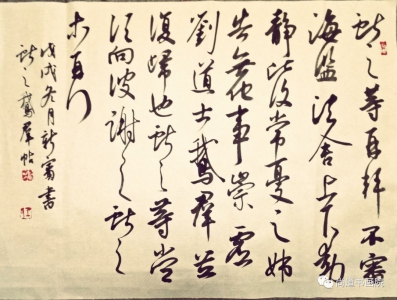 獻之等再拜不審
海鹽諸舍上下動
靜比復常憂之姊
告無他事崇虛
劉道士鵝群並
復歸也獻之等當
須向彼謝之獻之
戊戌冬月新
書
獻之鵝群帖